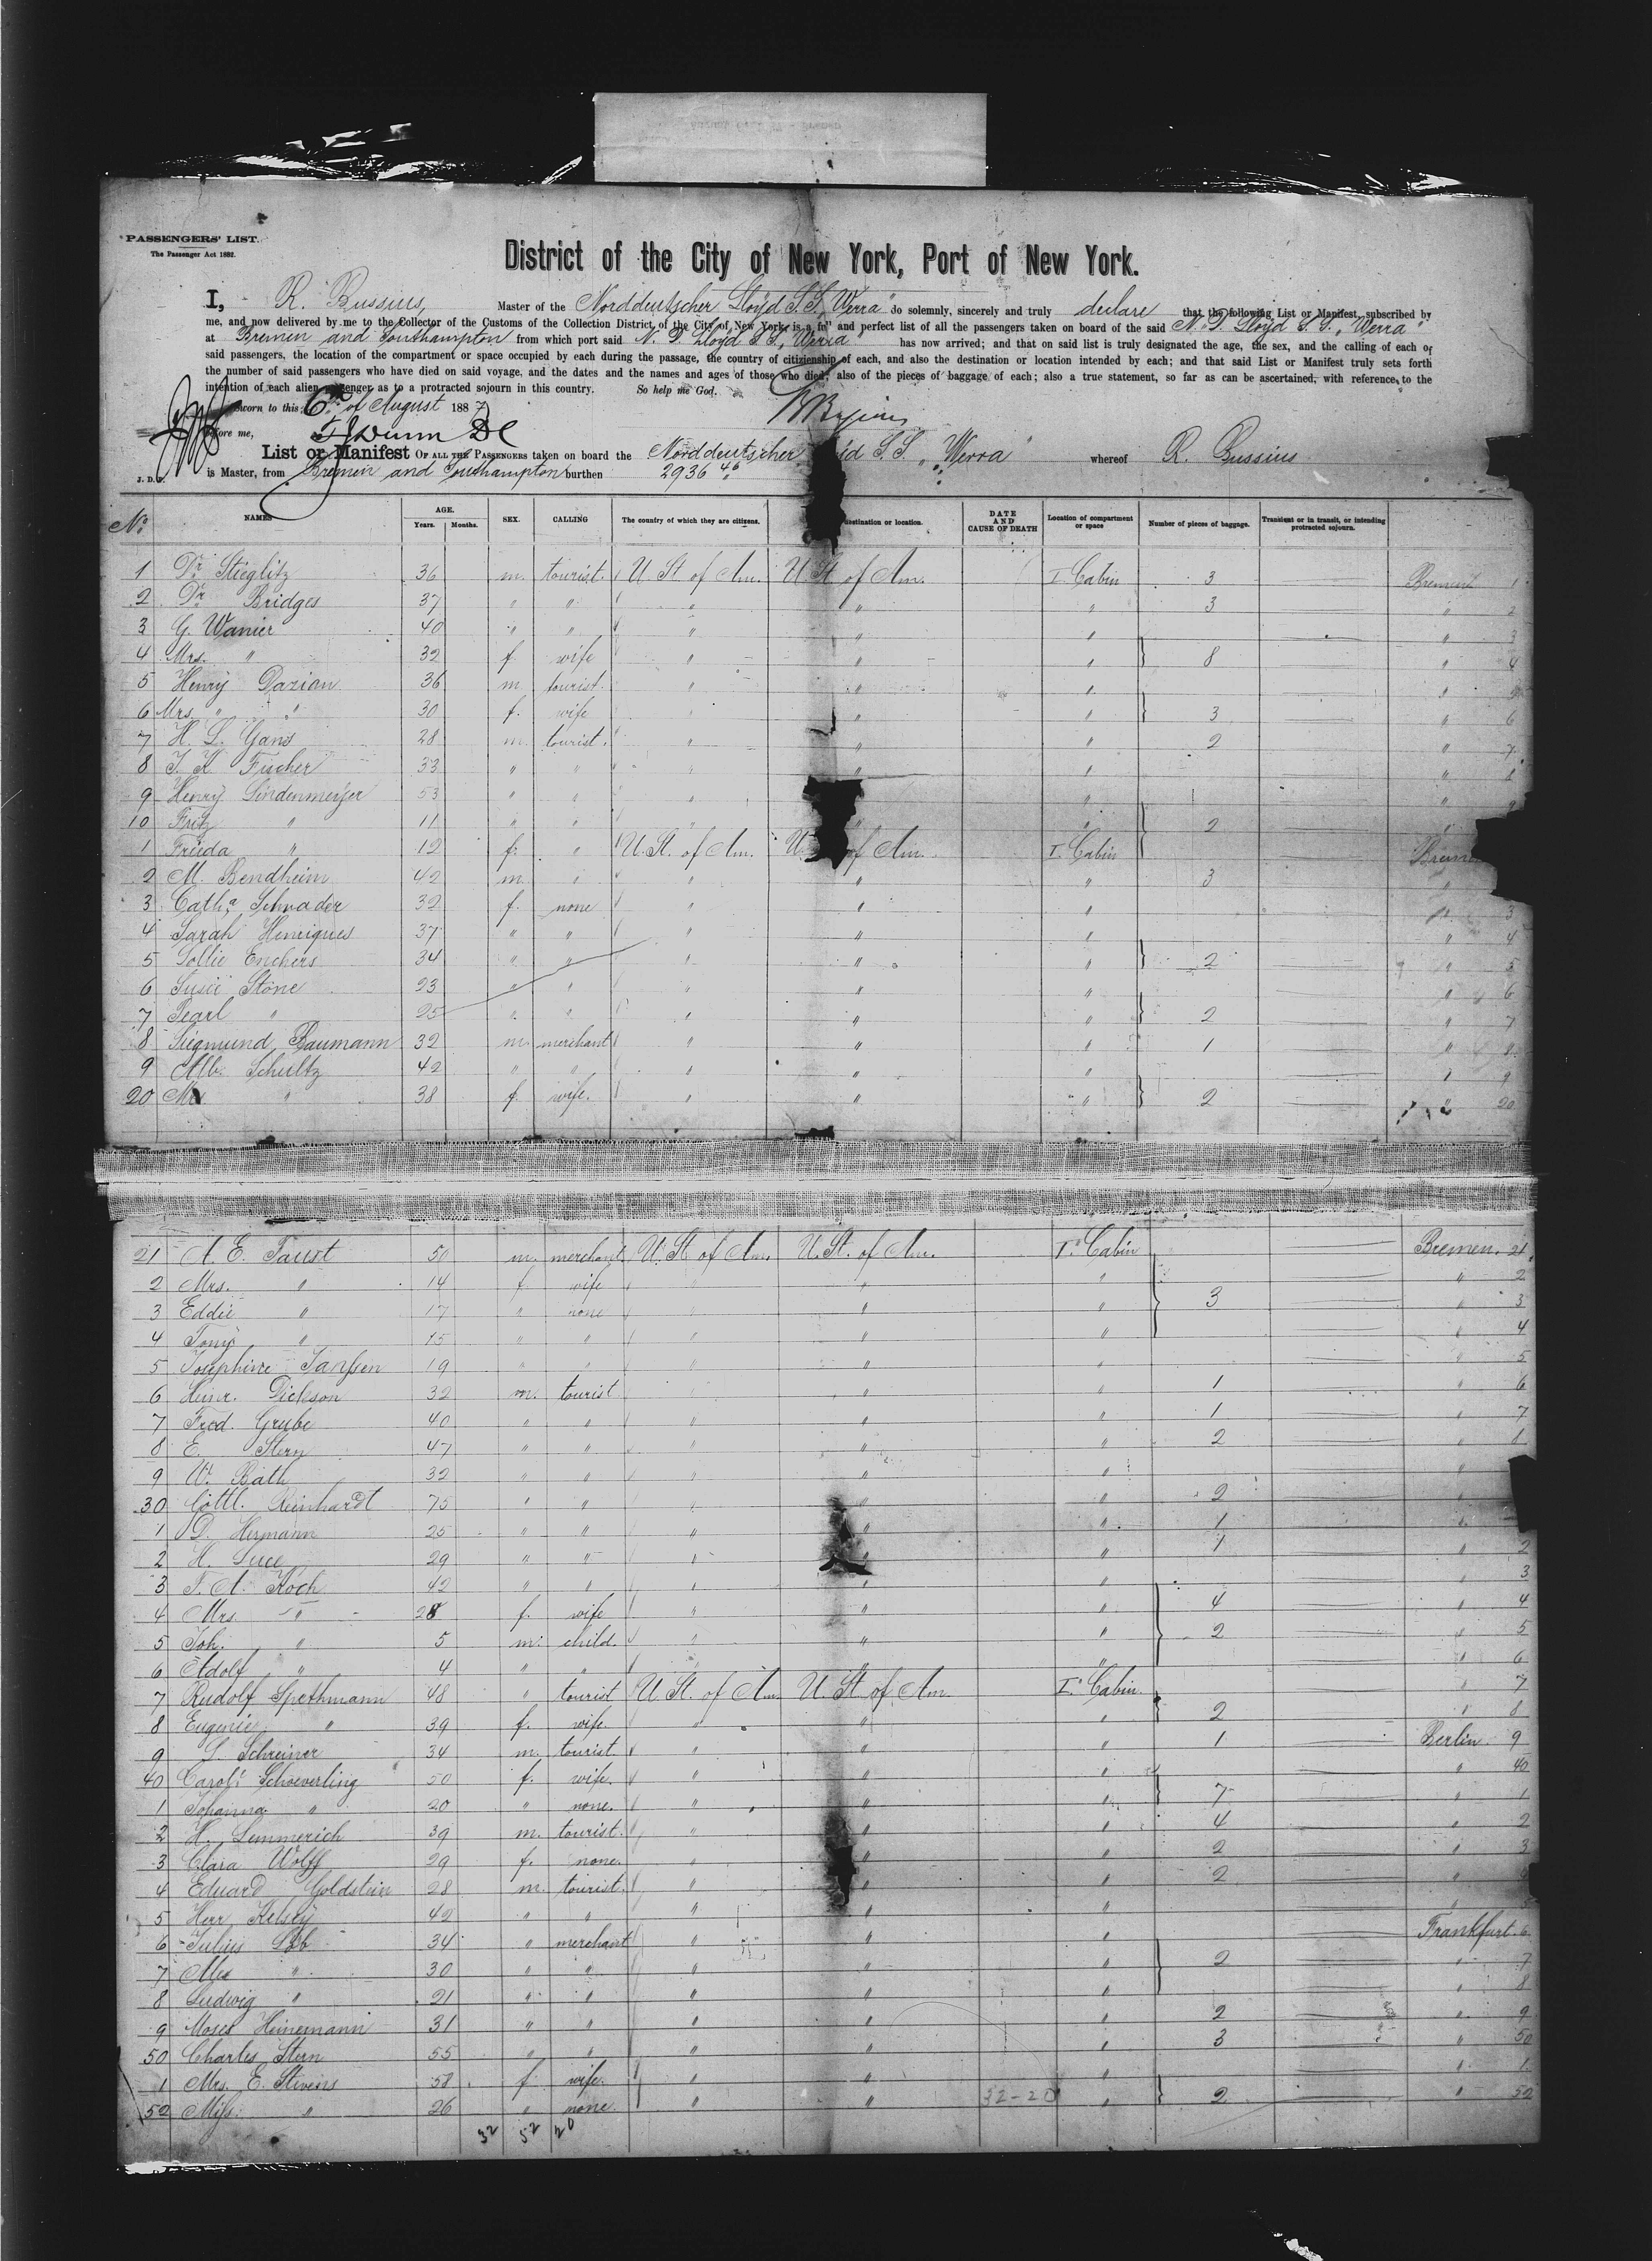 PASSENGERS' LIST.
The Passenger Act 1882.
District of the City of New York, Port of New York.
I, R. Bussius, Master of the Norddeutscher Lloyd S.S. „Werra" do solemnly, sincerely and truly declare that the following List or Manifest, subscribed by
me, and now delivered by me to the Collector of the Customs of the Collection District of the City of New York, is a full and perfect list of all the passengers taken on board of the said N. D. Lloyd S.S. „Werra"
at Bremen and Southampton from which port said N. D. Lloyd S.S. „Werra" has now arrived; and that on said list is truly designated the age, the sex, and the calling of each of
said passengers, the location of the compartment or space occupied by each during the passage, the country of citizienship of each, and also the destination or location intended by each; and that said List or Manifest truly sets forth
the number of said passengers who have died on said voyage, and the dates and the names and ages of those who died; also of the pieces of baggage of each; also a true statement, so far as can be ascertained, with reference to the
intention of each alien passenger as to a protracted sojourn in this country. So help me God.
Sworn to this 6th of August 1887
before me,
List or Manifest OF ALL THE PASSENGERS taken on board the Norddeutscher S.S. „Werra" whereof R. Bussius
J. D. is Master, from Bremen and Southampton burthen 2936 46
No NAMES AGE. Years. Months. SEX. CALLING The country of which they are citizens. destination or location. DATE AND CAUSE OF DEATH Location of compartment or space Number of pieces of baggage. Transient or in transit, or intending protracted sojourn.
1 Dr Stieglitz 36 m. tourist U St of Am. U. St. of Am. I. Cabin 3 Bremen 1
2 Dr Bridges 37 " " " " " 3 " 2
3 G. Wanier 40 " " " " " " 3
4 Mrs. " 32 f. wife " " " 8 " 4
5 Henry Dazian 36 m. tourist. " " " "
6 Mrs. " " 30 f. wife " " " 3 " 6
7 H. L. Yans 28 m. tourist. " " " 2 " 7
8 33 " " " " " " 8
9 Henry Lindenmeyer 53 " " " " " " 9
10 Fritz " 11 " " " " " 2 "
1 Frieda " 12 f. " U. St. of Am. U. of Am. I. Cabin
2 M. Bendheim 42 m. " " " " 3 "
3 Catha Schrader 32 f. none " " " " 3
4 Sarah Henriques 37 " " " " " " 4
5 34 " " " " " 2 " 5
6 Susie Stone 23 " " " " " " 6
7 Pearl " 25 " " " " " 2 " 7
8 Siegmund Baumann 32 m. merchant " " " 1 " 8
9 Alb. Schultz 42 " " " " " " 9
20 " 38 f. wife. " " " 2 " 20
21 A. E. Faust 50 m. merchant U. St of Am. U. St. of Am. I. Cabin Bremen. 21
2 Mrs. " 14 f. wife " " " " 2
3 Eddie " 17 " none " " " 3 " 3
4 Tony " 15 " " " " " " 4
5 Josephine Janssen 19 " " " " " " 5
6 Heinr. Dickson 32 m. tourist " " " 1 " 6
7 Fred. Grube 40 " " " " " 1 " 7
8 E. Stern 47 " " " " " 2 " 8
9 W. Bath 32 " " " " " "
30 Gottl. Reinhardt 75 " " " " " 2 "
1 D. Hermann 25 " " " " " 1 "
2 H. Luce 29 " " " " " 1 " 2
3 F. A. Koch 42 " " " " " " 3
4 Mrs. " 28 f. wife " " " 4 " 4
5 Joh. " 5 m. child. " " " 2 " 5
6 Adolf " 4 " " " " " " 6
7 Rudolf Spethmann 48 " tourist U. St. of Am. U. St. of Am. I. Cabin. " 7
8 Eugenie " 39 f. wife. " " " 2 " 8
9 L. Schreiner 34 m. tourist. " " " 1 Berlin. 9
40 Carol. Schoeverling 50 f. wife. " " " " 40
1 Johanna " 20 " none. " " " 7 " 1
2 H. Lemmerich 39 m. tourist. " " " 4 " 2
3 Clara Wolff 29 f. none. " " " 2 " 3
4 Eduard Goldstein 28 m. tourist. " " " 2 "
5 Herr Kelsey 42 " " " " " "
6 Julius Löb 34 " merchant " " " Frankfurt. 6
7 " 30 " " " " " 2 " 7
8 Ludwig " 21 " " " " " " 8
9 Moses Heinemann 31 " " " " " 2 " 9
50 Charles Stern 55 " " " " " 3 " 50
1 Mrs. E. Stevens 58 f wife. " " " " 1
52 Miss. " 26 " none. " " 32-20 " 2 " 52
32 52 20